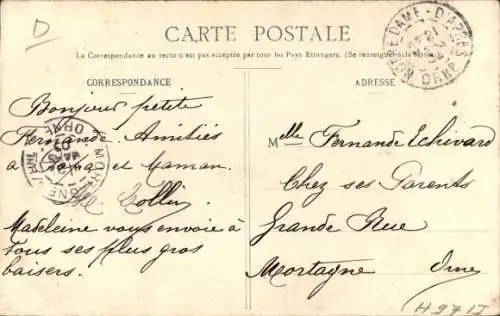 D
CARTE POSTALE
La Correspondance au recto n'est pas acceptée par tous les Pays Etrangers. (Se renseigner à la Poste)
CORRESPONDANCE
ADRESSE
Bonjour petite
Fernande. Amitiés
à Papa et Maman.
Collin
Madeleine vous envoie à
tous ses plus gros
baisers.
Melle Fernande Echivard
Chez ses Parents
Grande Rue
Mortagne Orne
E DAME-D'APRES
21
ORNE
MORTAGNE
ORNE
H 97 IJ